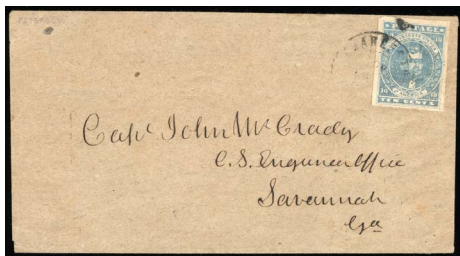 POSTAGE
TEN CENTS
Capt John McCrady
C. S. Engineer Office
Savannah
Ga